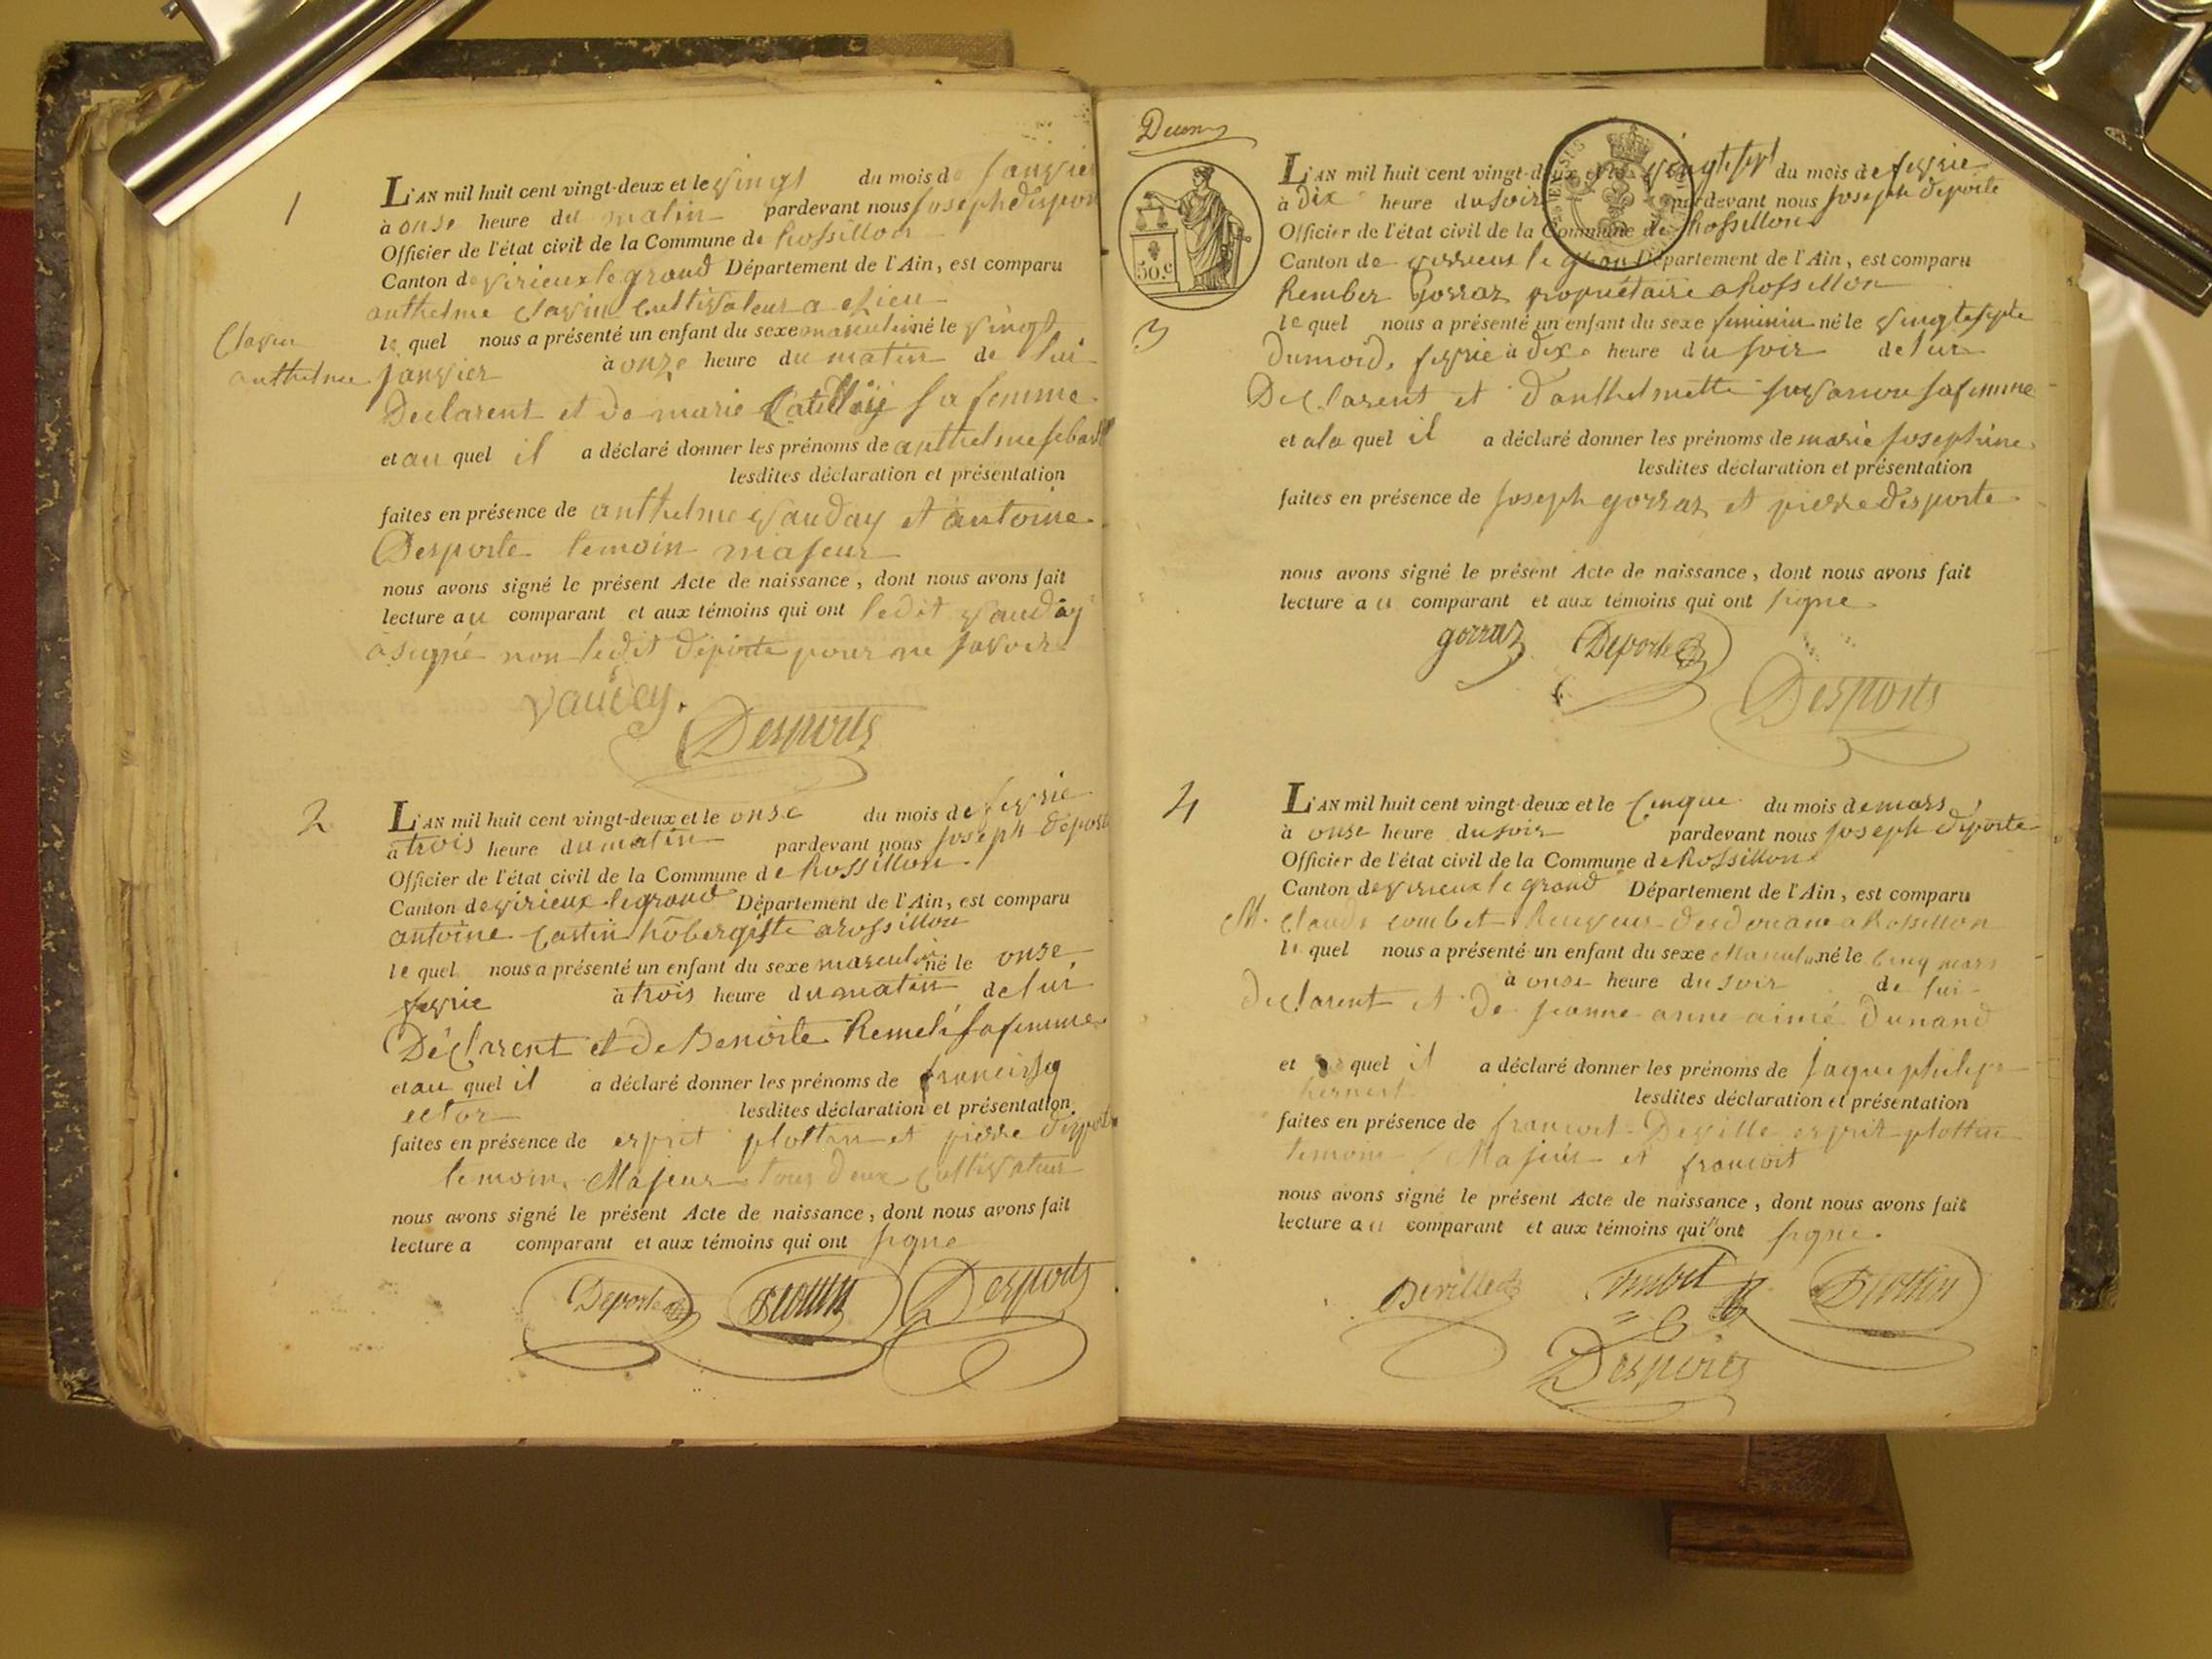 1
L'AN mil huit cent vingt-deux et le vingt du mois de janvier
à onse heure du matin pardevant nous joseph despor
Officier de l'état civil de la Commune de Rossillon
Canton de virieux le grand Département de l'Ain, est comparu
anthelme clavin cultivateur a
le quel nous a présenté un enfant du sexe masculin né le vingt
Clavin
anthelme
janvier à onze heure du matin de lui
Declarent et de marie sa femme
et au quel il a déclaré donner les prénoms de anthelme
lesdites déclaration et présentation
faites en présence de anthelme vauday et antoine
Desporte temoin majeur
nous avons signé le présent Acte de naissance, dont nous avons fait
lecture au comparant et aux témoins qui ont ledit vauday
a signé non ledit deporte pour ne savoir
vauday.
Desports
2
L'AN mil huit cent vingt-deux et le onse du mois de fevrie
à trois heure du matin pardevant nous joseph deporte
Officier de l'état civil de la Commune de Rossillon
Canton de virieux legrand Département de l'Ain, est comparu
antoine hôbergiste a rossillon
le quel nous a présenté un enfant du sexe masculin né le onse
fevrie à trois heure du matin de lui
Déclarent et de Benoite sa femme
et au quel il a déclaré donner les prénoms de
ector lesdites déclaration et présentation
faites en présence de esprit plottin et pierre desporte
temoin Majeur tous deux cultivateur
nous avons signé le présent Acte de naissance, dont nous avons fait
lecture a comparant et aux témoins qui ont signe
Deporte Plottin Desports
50.c
3
L'AN mil huit cent vingt-deux et le vingt sept du mois de fevrie
à dix heure du soir pardevant nous joseph deporte
Officier de l'état civil de la Commune de Rossillon
Canton de virrieux le gran Département de l'Ain, est comparu
Rember gorraz propriétaire a Rossillon
le quel nous a présenté un enfant du sexe feminin né le vingt septe
du mois, fevrie à dix heure du soir de lui
Declarent et d'anthelmette sa femme
et a la quel il a déclaré donner les prénoms de marie josephine
lesdites déclaration et présentation
faites en présence de joseph gorraz et pierre desporte
nous avons signé le présent Acte de naissance, dont nous avons fait
lecture au comparant et aux témoins qui ont signe
gorraz Deporte
Desports
4
L'AN mil huit cent vingt-deux et le cinque du mois de mars
à onse heure du soir pardevant nous joseph deporte
Officier de l'état civil de la Commune de Rossillon
Canton de virieux le grand Département de l'Ain, est comparu
M. claude combet a Rossillon
le quel nous a présenté un enfant du sexe Masculin né le cinq mars
à onse heure du soir de lui
declarent et de jeanne anne aimé Dunand
et quel il a déclaré donner les prénoms de jaque philipe
hernest lesdites déclaration et présentation
faites en présence de francoit Deville esprit plottin
temoin Majeur et francoit
nous avons signé le présent Acte de naissance, dont nous avons fait
lecture au comparant et aux témoins qui ont signe.
Deville Combet Plottin
Desports